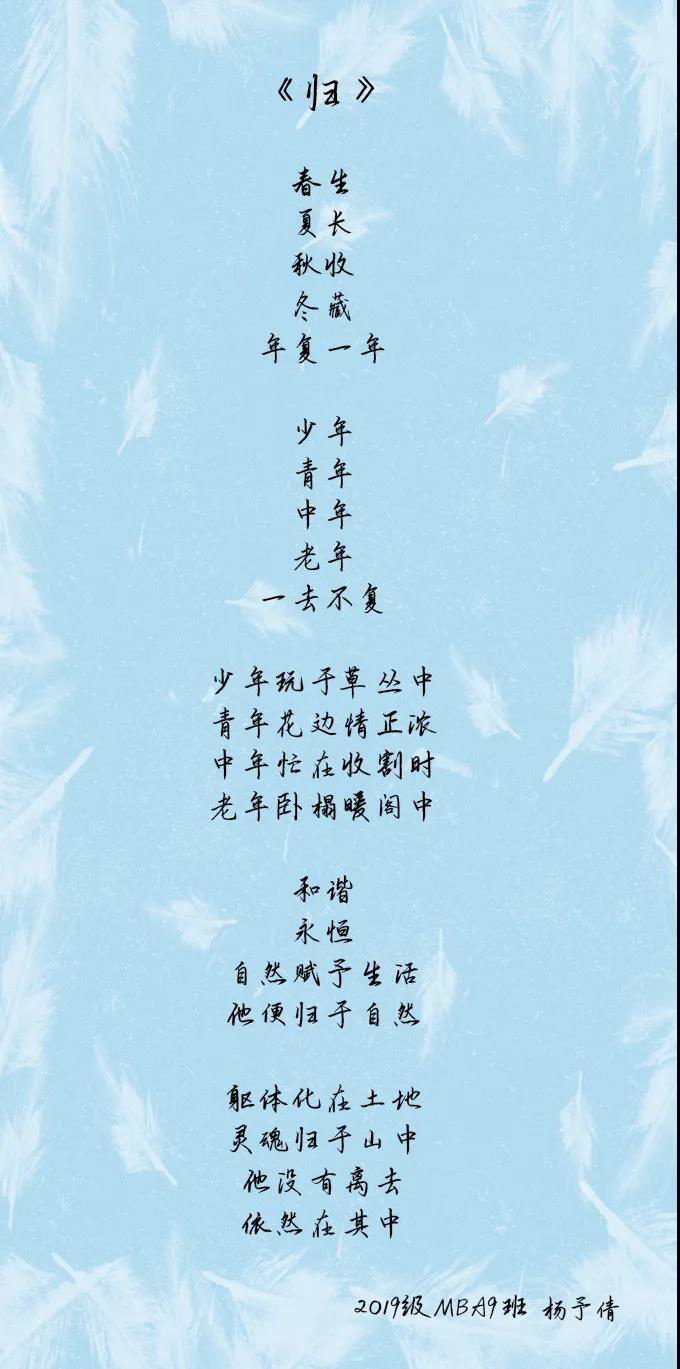 《归》
春生
夏长
秋收
冬藏
年复一年
少年
青年
中年
老年
一去不复
少年玩于草丛中
青年花边情正浓
中年忙在收割时
老年卧榻暖阁中
和谐
永恒
自然赋予生活
他便归于自然
躯体化在土地
灵魂归于山中
他没有离去
依然在其中
2019级MBA9班 杨予倩